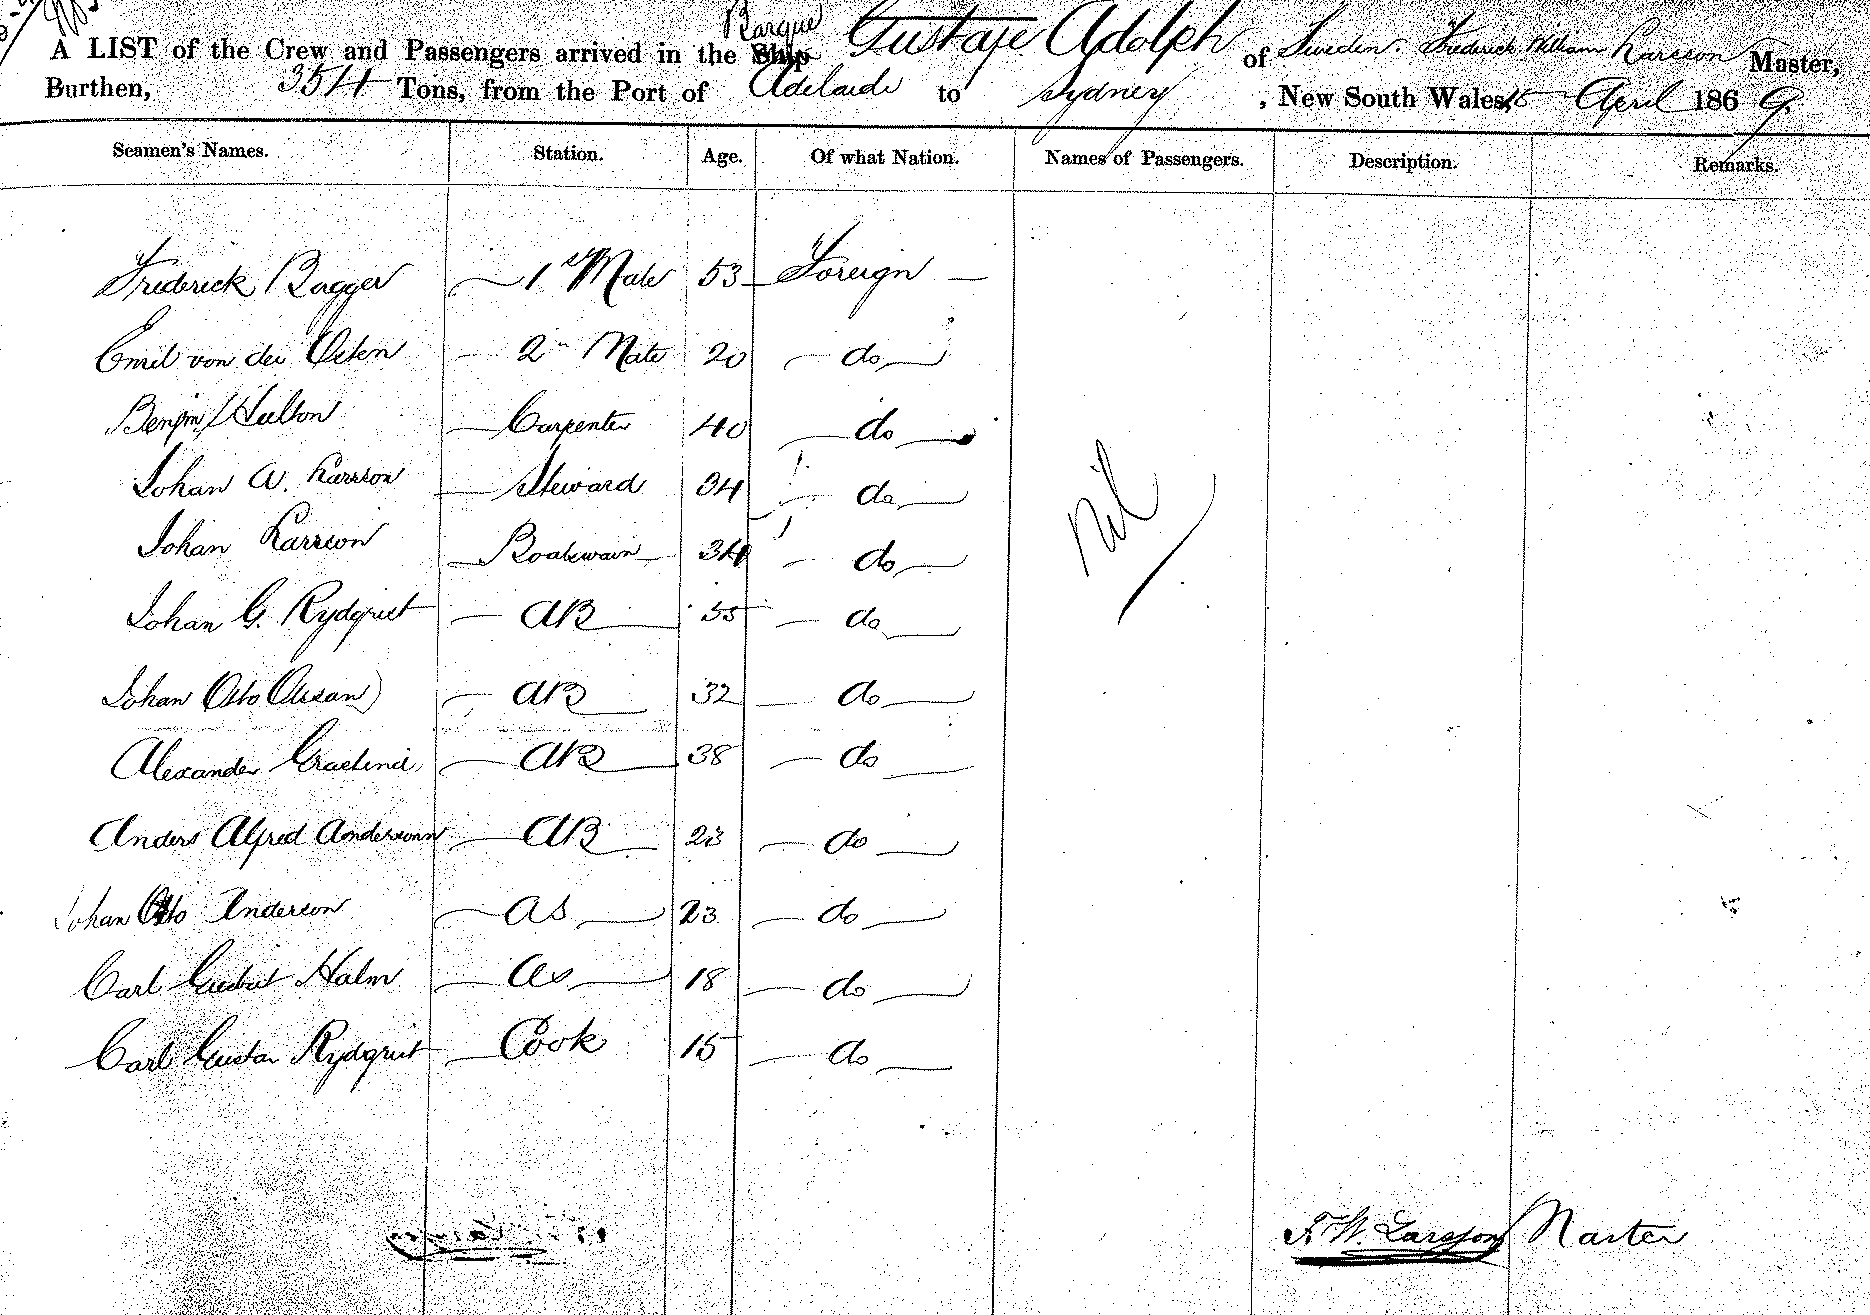 Barque
A LIST of the Crew and Passengers arrived in the Ship Gustafe Adolph of Sweden. Frederick William Larsson Master,
Burthen, 354 Tons, from the Port of Adelaide to Sydney , New South Wales, 15 April 1869
Seamen's Names. Station. Age. Of what Nation. Names of Passengers. Description. Remarks.
Frederick Bagger 1st Mate 53 Foreign
Emil von der Osten 2n Mate 20 do
Benjm Hulton Carpenter 40 do
Johan A. Larsson Steward 34 do
Nil
Johan Larsson Boatswain 34 do
Johan G. Rydqvist AB 55 do
Johan Otto AB 32 do
Alexander AB 38 do
Anders Alfred Anderssonn AB 23 do
Johan Otto Anderson AS 23 do
Carl Gustat Halm AS 18 do
Carl Gustav Rydqvist Cook 15 do
F. W. Larsson Master